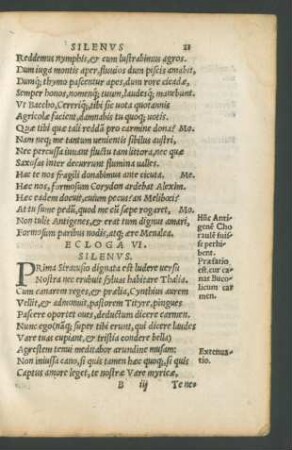 SILENVS 21
Reddemus nymphis, & cum lustrabimus agros.
Dum iuga montis aper, fluuios dum piscis amabit,
Dumq; thymo pascentur apes, dum rore cicadæ,
Semper honos, nomenq; tuum, laudesq; manebunt.
Vt Baccho, Cereriq; tibi sic uota quotannis
Agricolæ facient, damnabis tu quoq; uotis.
Quæ tibi quæ tali reddã pro carmine dona? Mo.
Nam neq; me tantum uenientis sibilus austri,
Nec percussa iuuant fluctu tam littora, nec quæ
Saxosas inter decurrunt flumina ualles.
Hac te nos fragili donabimus ante cicuta. Me.
Hæc nos, formosum Corydon ardebat Alexim.
Hæc eadem docuit, cuium pecus? an Meliboei?
At tu sume pedū, quod me cū sæpe rogaret, Mo.
Non tulit Antigenes, & erat tum dignus amari,
Formosum paribus nodis, atq; ære Menalca.
Hũc Antigenē Cho
raulē fuis
se perhibent.
ECLOGA VI.
SILENVS.
PRima Siracusio dignata est ludere uersu
Nostra nec erubuit syluas habitare Thalia.
Cum canerem reges, & prælia, Cynthius aurem
Vellit, & admonuit, pastorem Tityre, pingues
Pascere oportet oues, deductum dicere carmen.
Præfatio
est, cur canat Buco
licum carmen.
Nunc ego (nāq; super tibi erunt, qui dicere laudes
Vare tuas cupiant, & tristia condere bella)
Agrestem tenui meditabor arundine musam:
Non iniussa cano, si quis tamen hæc quoq;, si quis
Captus amore leget, te nostræ Vare myricæ,
Extenuatio.
B iij Te ne-